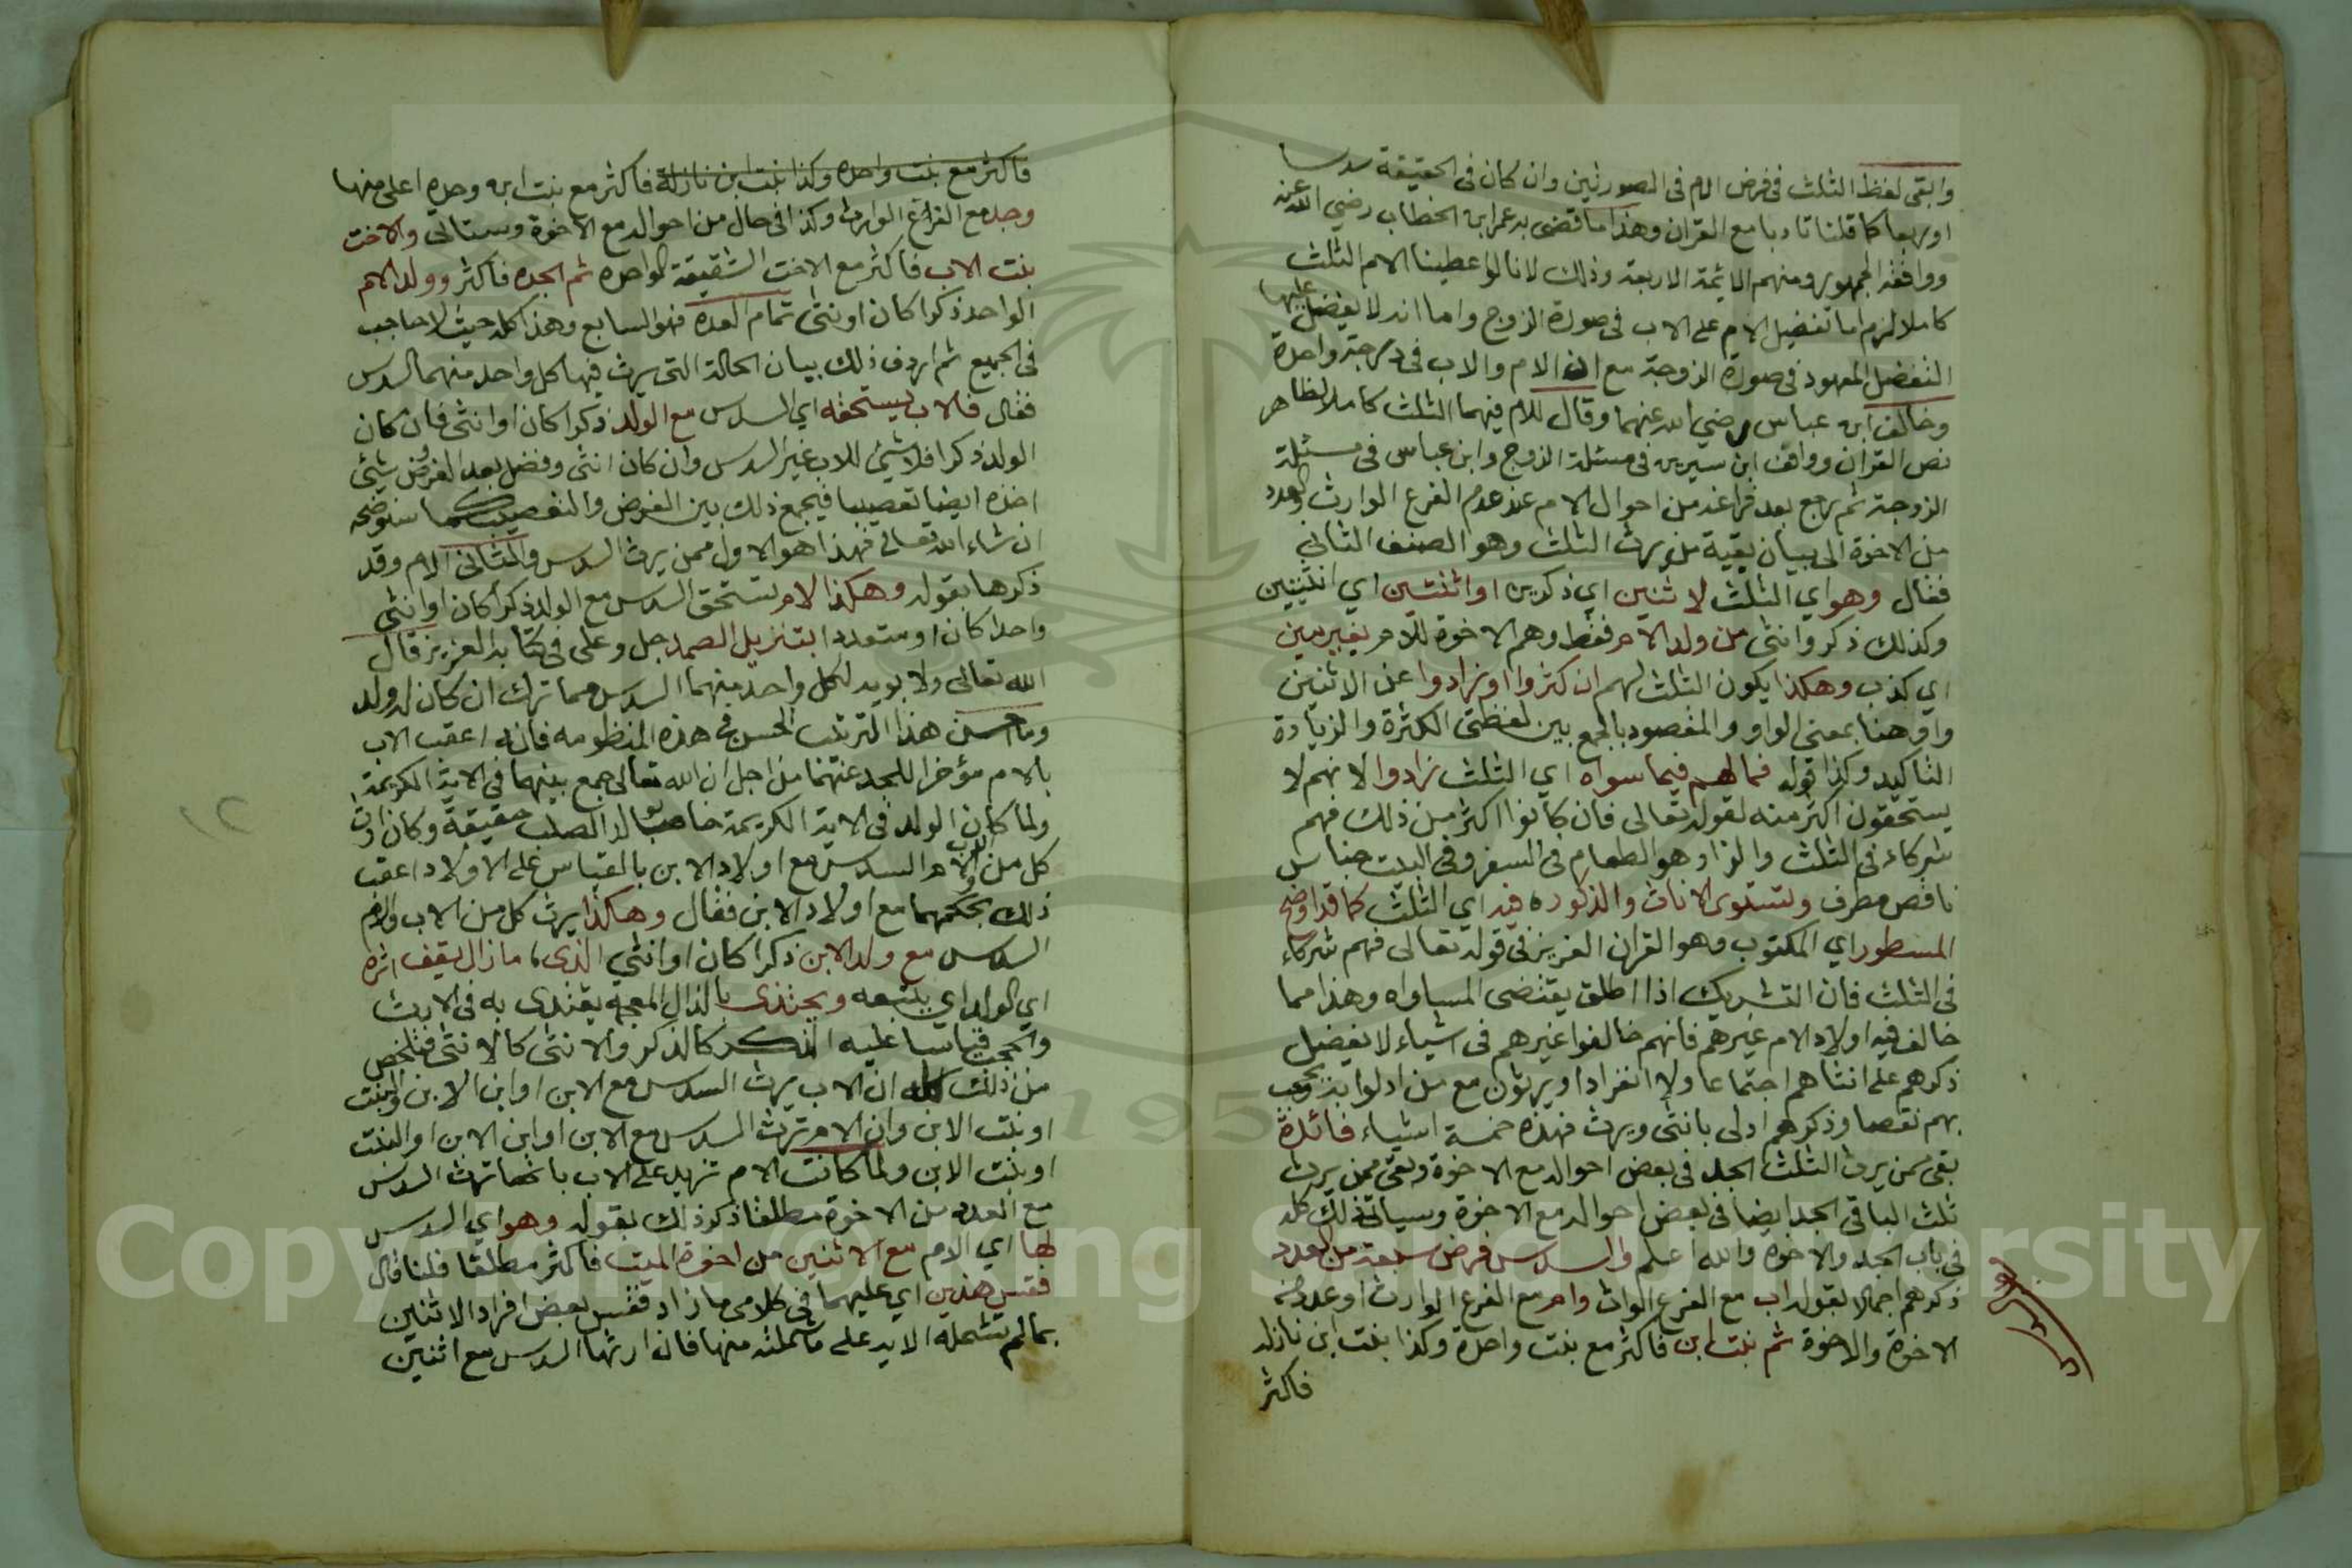 وابقى لفظ الثلث في فرض الام في الصورتين وان كان في الحقيقة سدسا
او ربعا كما قلنا تادبا مع القران وهذا ما قضى به عمر ابن الخطاب رضي الله عنه
ووافقه الجمهور ومنهم الايمة الاربعة وذلك لانا لو اعطينا الام الثلث
كاملا لزم اما تفضيل الام على الاب في صورة الزوج واما انه لا يفضل عليها
التفضيل المعهود في صورة الزوجة مع ان الام والاب في درجة واحدة
وخالف ابن عباس رضي الله عنهما وقال للام فيهما الثلث كاملا لظاهر
نص القران ووافق ابن سيرين في مسئلة الزوج وابن عباس في مسئلة
الزوجة ثم رجع بعد فراغه من احوال الام عند عدم الفرع الوارث والعدد
من الاخوة الى بيان بقية من يرث الثلث وهو الصنف الثاني
فقال وهو اي الثلث لاثنين اي ذكرين او اثنتين اي انثيين
وكذلك ذكر وانثى من ولد الام فقط وهم الاخوة للام بغير مين
اي كذب وهكذا يكون الثلث لهم ان كثروا او زادوا عن الاثنين
واو هنا بمعنى الواو والمقصود بالجمع بين لفظتي الكثرة والزيادة
التاكيد وكذا قوله فما لهم فيما سواه اي الثلث زادوا لانهم لا
يستحقون اكثر منه لقوله تعالى فان كانوا اكثر من ذلك فهم
شركاء في الثلث والزاد هو الطعام في السفر وفي البيت جناس
ناقص مطرف وتستوي الاناث والذكوره فيه اي الثلث كما قد اوضح
المسطور اي المكتوب وهو القران العزيز في قوله تعالى فهم شركاء
في الثلث فان التشريك اذا اطلق يقتضي المساواه وهذا مما
خالف فيه اولاد الام غيرهم فانهم خالفوا غيرهم في اشياء لا يفضل
ذكرهم على انثاهم اجتماعا ولا انفرادا ويرثون مع من ادلوا به ويحجب
بهم نقصا وذكرهم ادلى بانثى ويرث فهذه خمسة اشياء فائدة
بقى ممن يرث الثلث الجد في بعض احواله مع الاخوة وبقى ممن يرث
ثلث الباقي الجد ايضا في بعض احواله مع الاخوة وسياتي ذلك كله
في باب الجد والاخوة والله اعلم والسدس فرض سبعة من العدد
ذكرهم اجمالا بقوله اب مع الفرع الوارث وام مع الفرع الوارث او عدد من
الاخوة والاخوة ثم بنت ابن فاكثر مع بنت واحدة وكذا بنت ابن نازله
فاكثر
فاكثر مع بنت واحده وكذا بنت ابن نازلة فاكثر مع بنت ابن وحده اعلى منها
وجد مع الفرع الوارث وكذا في حال من احواله مع الاخوة وستاتي والاخت
بنت الاب فاكثر مع الاخت الشقيقة الواحده ثم الجده فاكثر وولد الام
الواحد ذكرا كان او انثى تمام العده فهو السابع وهذا كله حيث لا حاجب
في الجميع ثم اردف ذلك ببيان الحالة التي يرث فيها كل واحد منهما السدس
فقال فالاب يستحقه اي السدس مع الولد ذكرا كان او انثى فان كان
الولد ذكرا فلا شيء للاب غير السدس وان كان انثى وفضل بعد الفروض شيئ
اخذه ايضا تعصيبا فيجمع ذلك بين الفرض والتعصيب كما سنوضحه
ان شاء الله تعالى فهذا هو الاول ممن يرث السدس والثاني الام وقد
ذكرها بقوله وهكذا الام تستحق السدس مع الولد ذكرا كان او انثى
واحدا كان او متعددا بتنزيل الصمد جل وعلى في كتابه العزيز قال
الله تعالى ولابويه لكل واحد منهما السدس مما ترك ان كان له ولد
وما احسن هذا الترتيب الحسن في هذه المنظومه فانه اعقب الاب
بالام مؤخرا للجد عنهما من اجل ان الله تعالى جمع بينهما في الاية الكريمة
ولما كان الولد في الاية الكريمة خاصا بولد الصلب حقيقة وكان ارث
كل من الاب والام السدس مع اولاد الابن بالقياس على الاولاد اعقب
ذلك بحكمهما مع اولاد الابن فقال وهكذا يرث كل من الاب والام
السدس مع ولد الابن ذكرا كان او انثي الذى ما زال يقف اثره
اي الولد اي يتبعه ويحتذى بالذال المعجمه يقتدى به في الارث
والحجب قياسا عليه الذكر كالذكر والانثى كالانثى فتلخص
من ذلك كله ان الاب يرث السدس مع الابن او ابن الابن والبنت
او بنت الابن وان الام ترث السدس مع الابن او ابن الابن او البنت
او بنت الابن ولما كانت الام تزيد على الاب بانها ترث السدس
مع العدد من الاخوة مطلقا ذكر ذلك بقوله وهو اي السدس
لها اي الام مع الاثنين من اخوة الميت فاكثر مطلقا فلذا قال
فقس هذين اي عليهما في كلامي ما زاد فقس بعض افراد الاثنين
بما لم تشمله الاية على ما شملته منها فان ارثها السدس مع اثنين